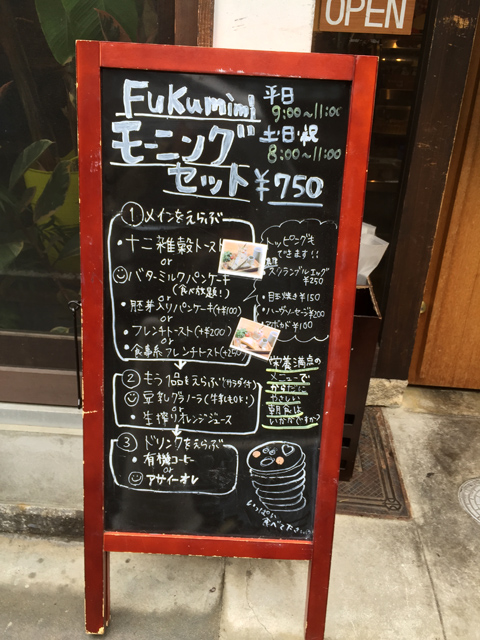 OPEN
Fukumimi
モーニング
セット ¥750
平日
9:00～11:00
土・日・祝
8:00～11:00
① メインをえらぶ
・十二雑穀トースト
or
バターミルクパンケーキ
(食べ放題!)
or
・胚芽入りパンケーキ(+¥100)
or
・フレンチトースト(+¥200)
or
・食事系フレンチトースト(+250)
トッピングも
できます!!
スクランブルエッグ
¥250
・目玉焼き ¥150
・ハーブソーセージ ¥200
・アボカド ¥100
② もう1品をえらぶ(サラダ付)
豆乳グラノーラ(牛乳もOK!)
or
・生搾りオレンジジュース
③ ドリンクをえらぶ
・有機コーヒー
or
アサイーオレ
栄養満点の
メニューで
からだに
やさしい
朝食は
いかがですか?
いっぱい
食べて下さい